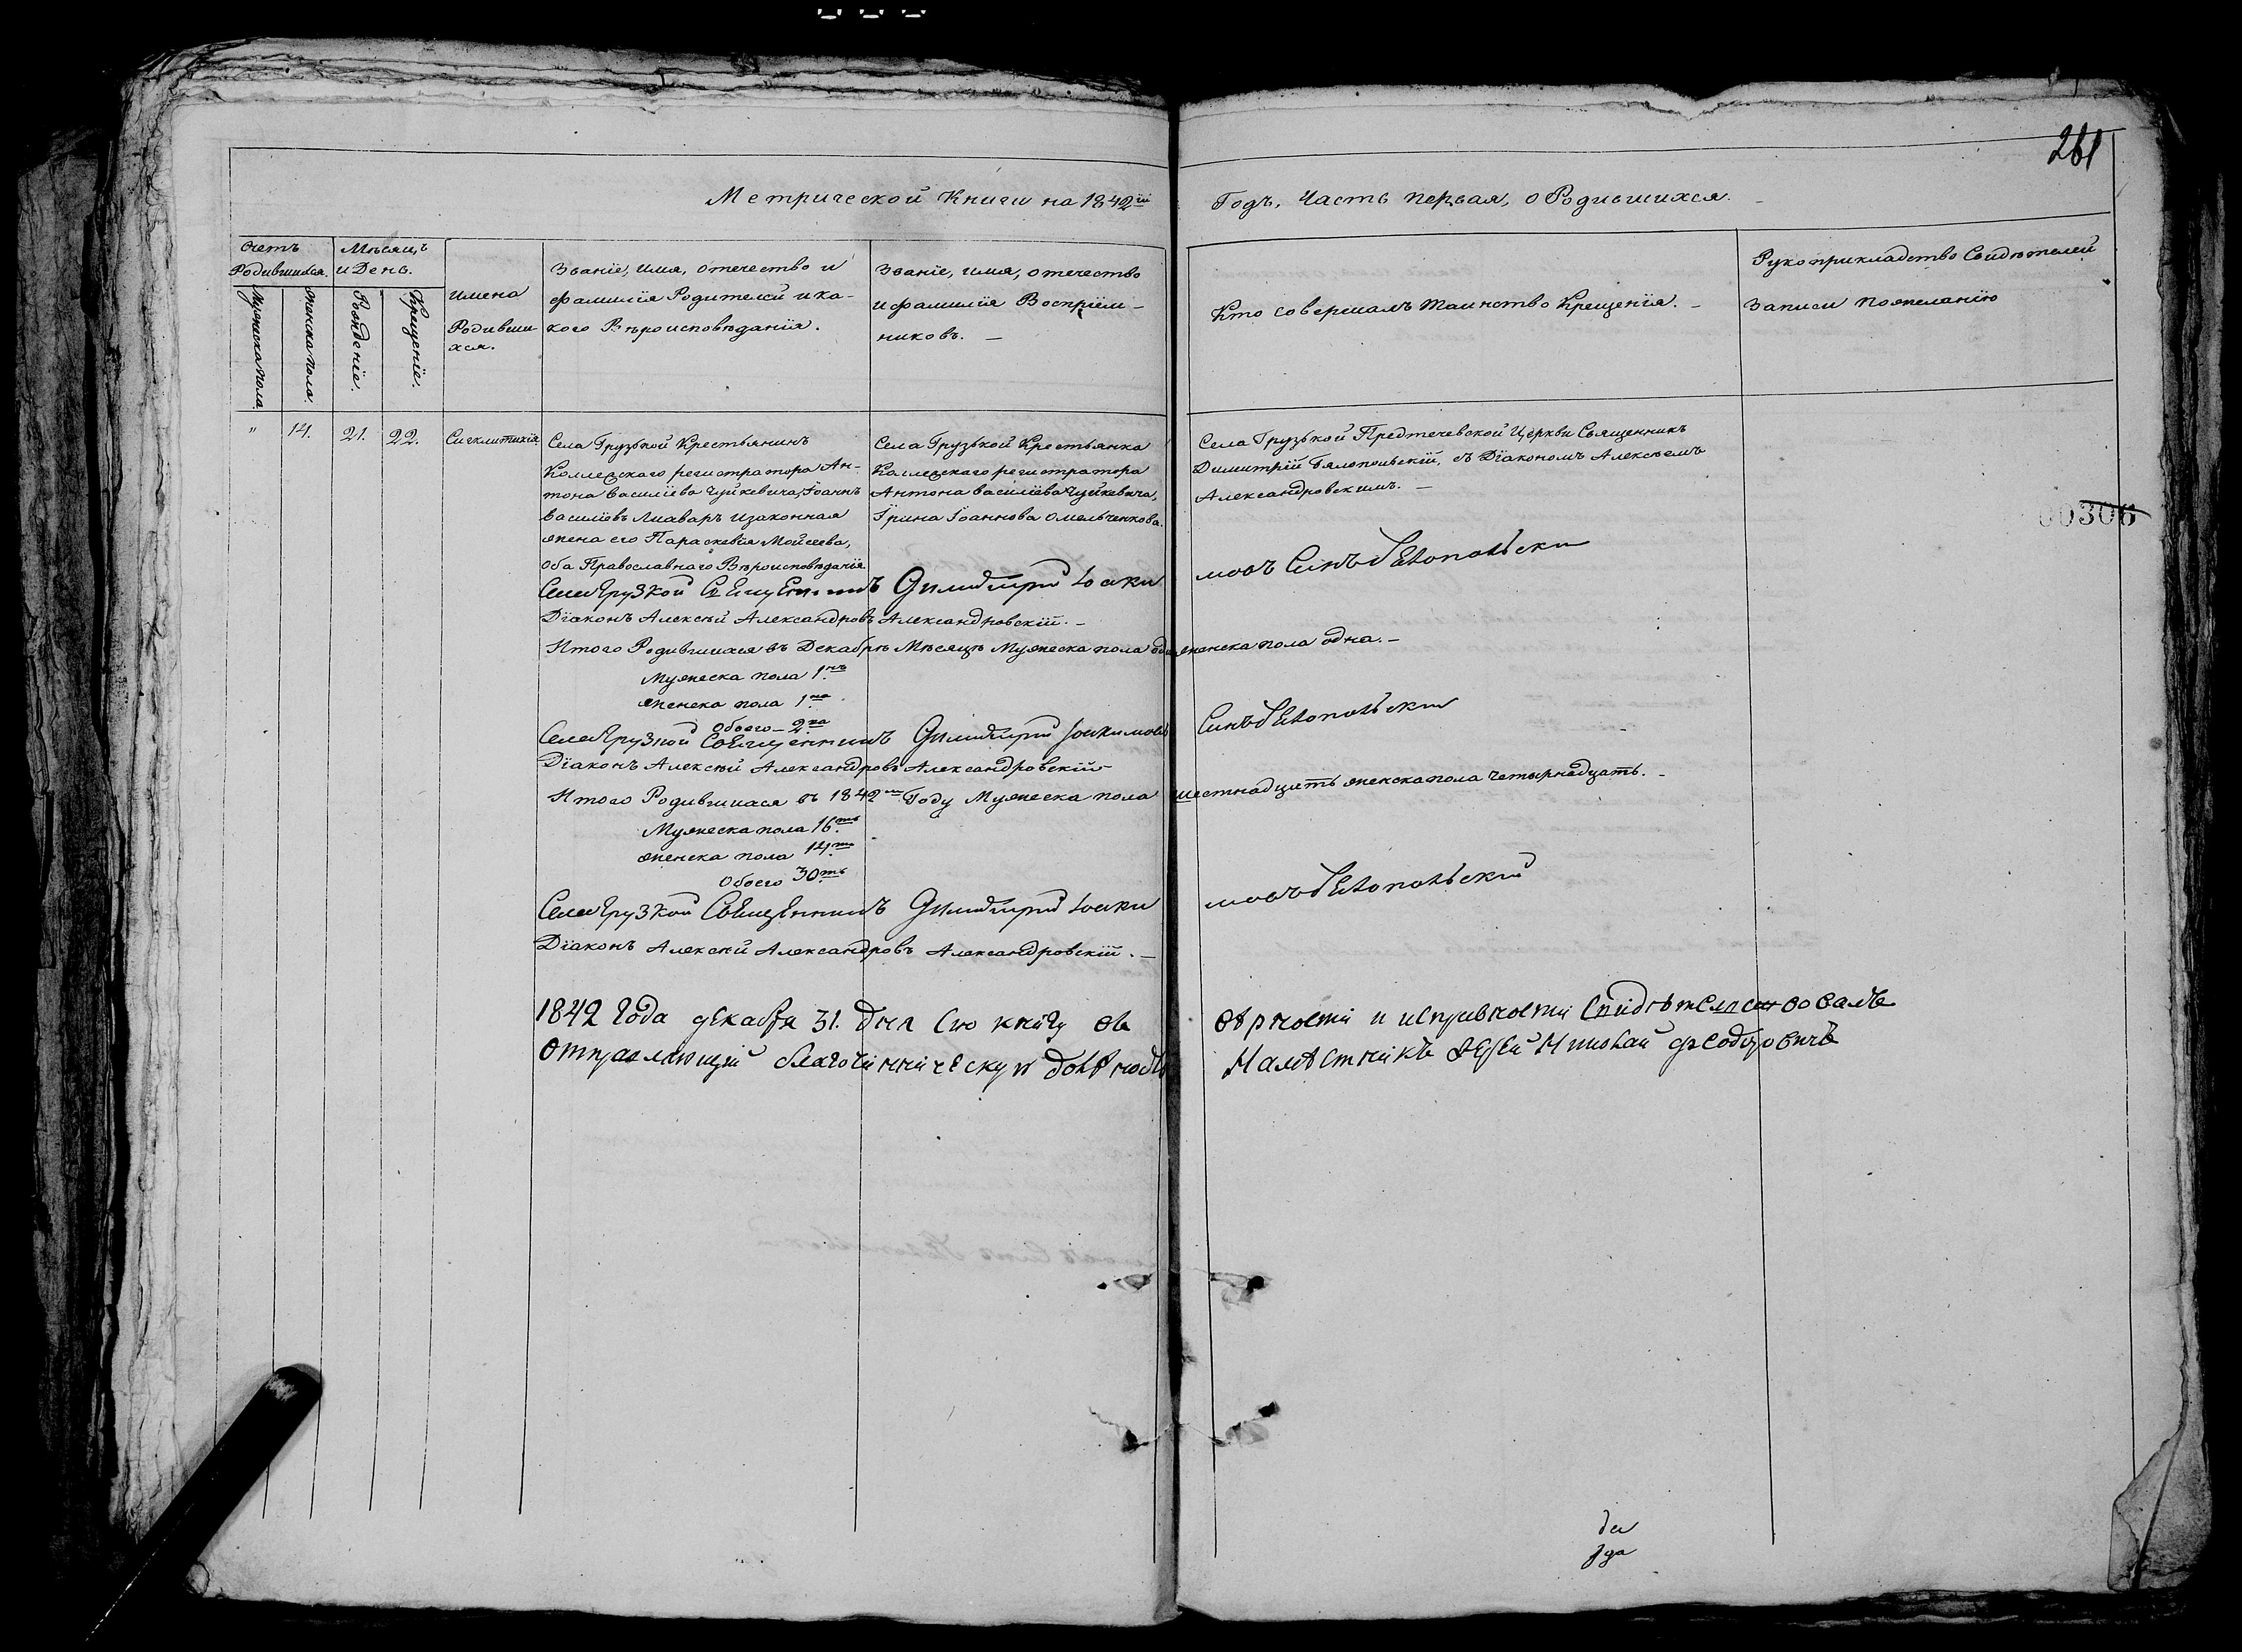 261
Метрической Книги на 1842й Годъ, Часть первая, о Родившихся.
Счетъ Родившихся.
Мѣсяцъ и День.
Мужеска пола.
Женска пола.
Рождение.
Крещеніе.
Имена
Родивши
хся.
Званіе, Имя, отечество и
фамилія Родителей и ка-
кого Вѣроисповѣданія.
Званіе, имя, отечество
и фамилія Воспріем-
никовъ. —
Кто совершалъ Таинство Крещенія. —
Рукоприкладство Свидѣтелей
Записи по желанію
" 14. 21. 22. Сигклитикія
Села Грузькой Крестьянинъ
Коллежскаго регистратора Ан-
тона Василіева Чуйкевича, Іоаннъ
Василіевъ Лиаваръ и законная
жена его Параскевія Мойсеева,
оба Православнаго Вѣроисповѣданія
Села Грузькой Крестьянка
Коллежскаго регистратора
Антона Василіева Чуйкевича,
Ірина Іоаннова Омельченкова.
Села Грузькой Предтечевской Церкви Священникъ
Димитрій Бялопольскій, съ Діакономъ Алексѣемъ
Александровскимъ. —
00306
Села Грузкой Священникъ Димитрий Іоаки мовъ Синъ Белопольски
Діаконъ Алексѣй Александровъ Александровскій. —
Итого Родившихся въ Декабрѣ Мѣсяцѣ Мужеска пола женска пола одна. —
Мужеска пола 1нъ
женска пола 1на
Обоего — 2ва
Села Грузкой Священникъ Димитрий Іоакимовъ Синъ Белопольски
Діаконъ Алексѣй Александровъ Александровскій
Итого Родившихся въ 1842м Году Мужеска пола шестнадцать женска пола четырнадцать. —
Мужеска пола 16ть
женска пола 14ть
Обоего 30ть
Села Грузкой Священникъ Димитрий Іоаки мовъ Белопольский
Діаконъ Алексѣй Александровъ Александровскій. —
1842 года декабря 31. дня Сю книгу въ вѣрности и исправности Свидѣтелствовалъ
Отправляющій благочинническую должность Намѣстникъ Іерей Николай Федоровичъ